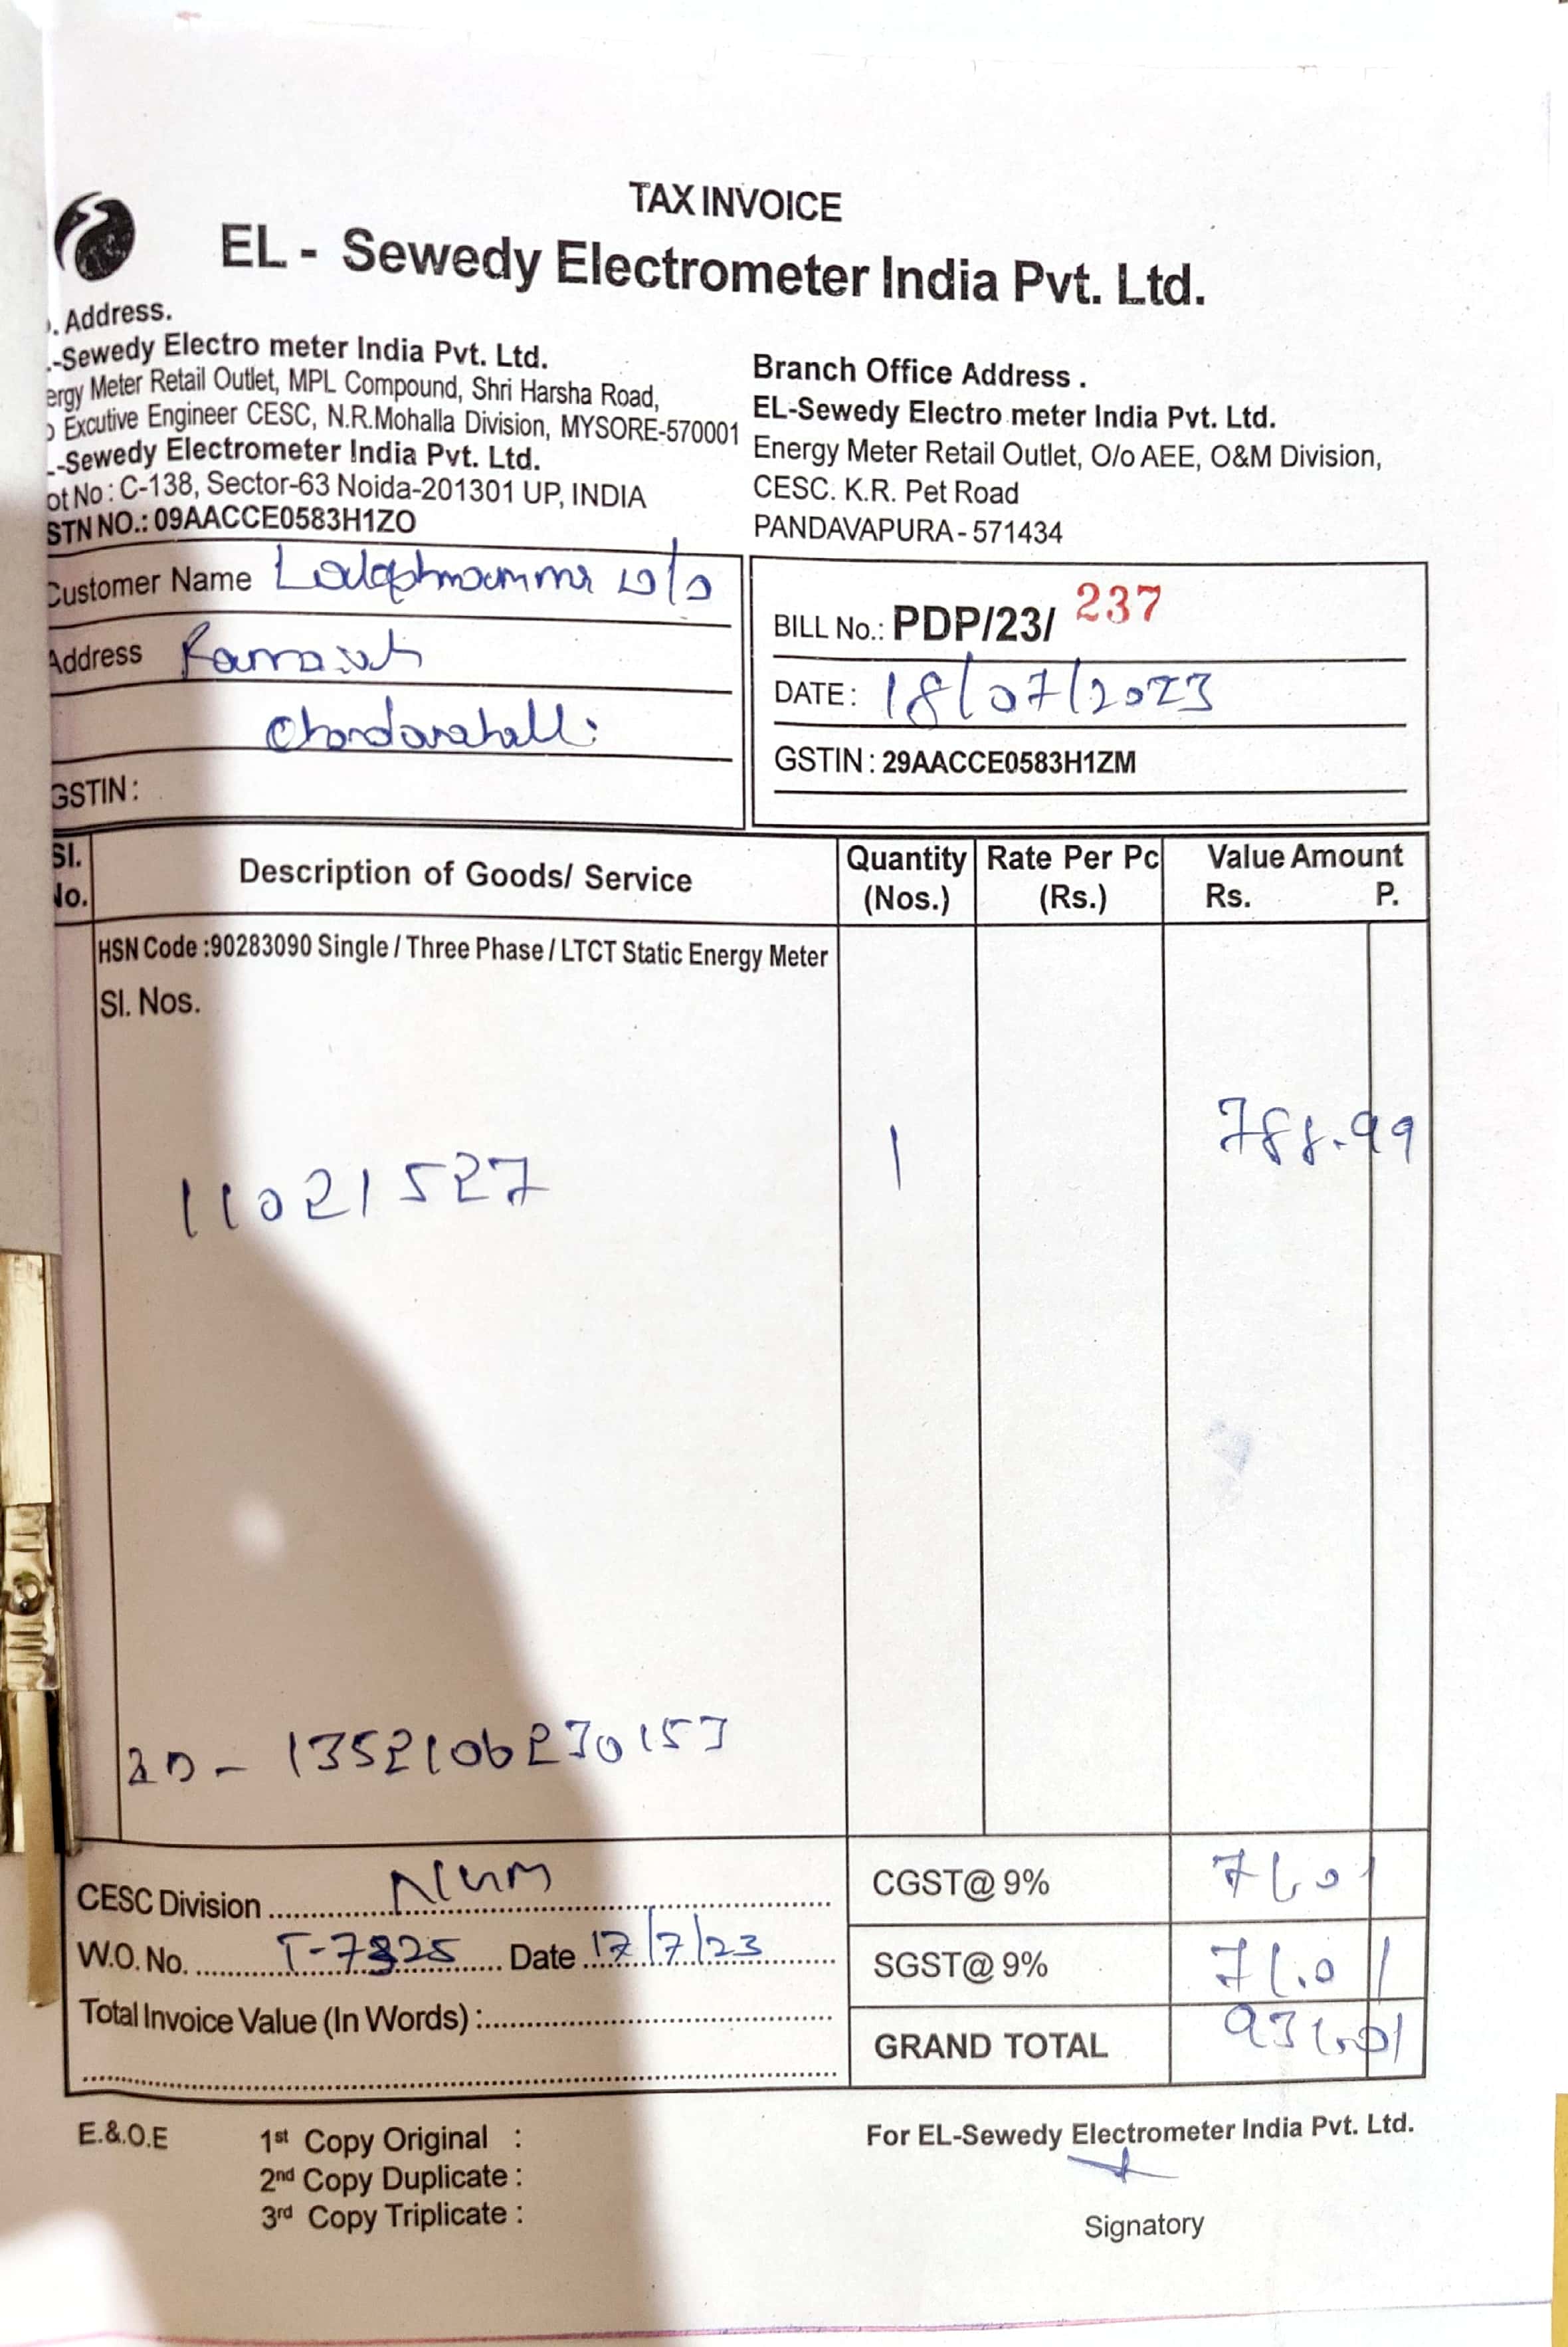 TAX INVOICE
EL - Sewedy Electrometer India Pvt. Ltd.
. Address.
.-Sewedy Electro meter India Pvt. Ltd.
ergy Meter Retail Outlet, MPL Compound, Shri Harsha Road,
o Excutive Engineer CESC, N.R.Mohalla Division, MYSORE-570001
.-Sewedy Electrometer India Pvt. Ltd.
ot No : C-138, Sector-63 Noida-201301 UP, INDIA
STN NO.: 09AACCE0583H1ZO
Branch Office Address .
EL-Sewedy Electro meter India Pvt. Ltd.
Energy Meter Retail Outlet, O/o AEE, O&M Division,
CESC. K.R. Pet Road
PANDAVAPURA - 571434
Customer Name w/o
Address Ramaiah
GSTIN :
BILL No.: PDP/23/ 237
DATE : 18/07/2023
GSTIN : 29AACCE0583H1ZM
Sl. No. Description of Goods/ Service Quantity (Nos.) Rate Per Pc (Rs.) Value Amount Rs. P.
HSN Code :90283090 Single / Three Phase / LTCT Static Energy Meter
Sl. Nos.
11021527 1 788.99
- 1352106230153
CESC Division
CGST@ 9% 71.01
W.O. No. Date 17/7/23
SGST@ 9% 71.01
Total Invoice Value (In Words) :
GRAND TOTAL 931.01
E.&.O.E
1st Copy Original :
2nd Copy Duplicate :
3rd Copy Triplicate :
For EL-Sewedy Electrometer India Pvt. Ltd.
Signatory